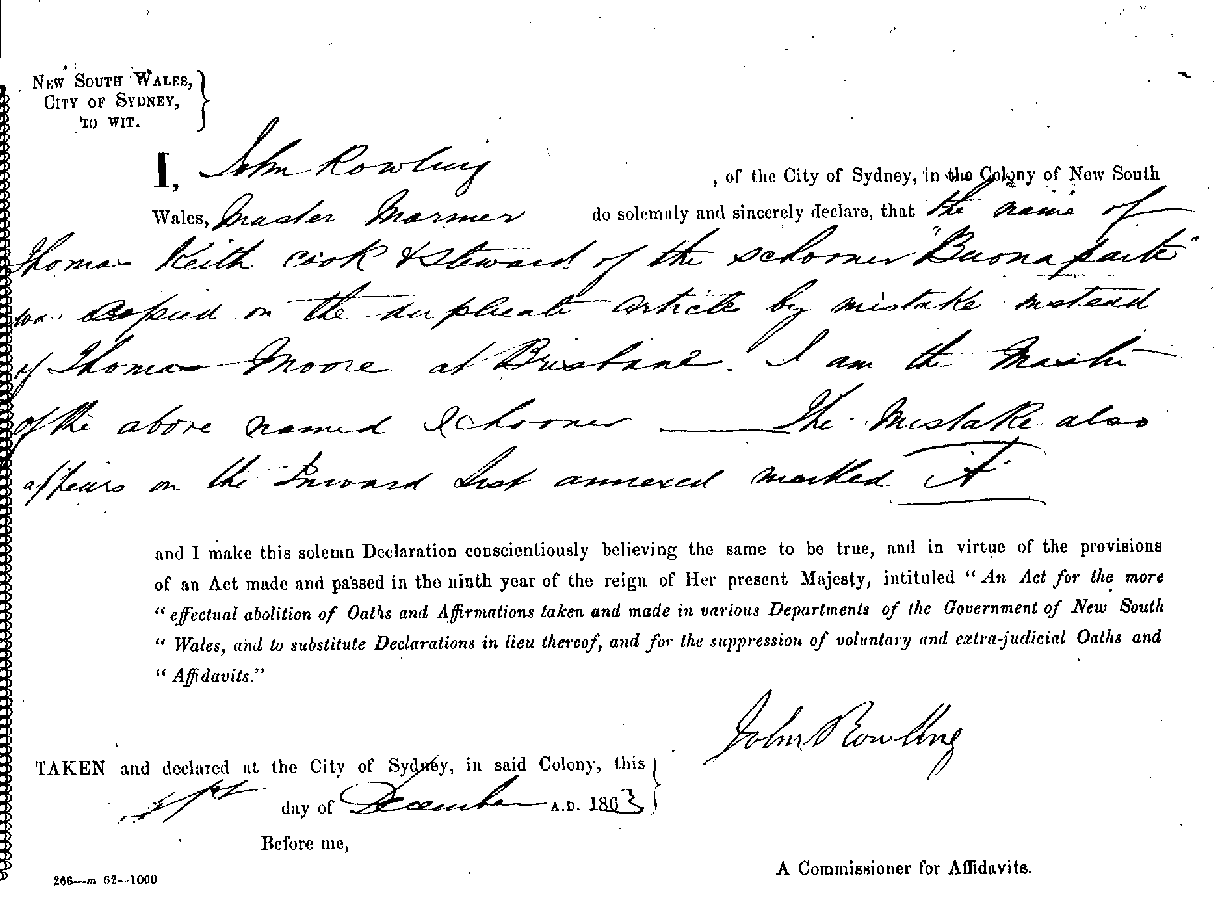 NEW SOUTH WALES,
CITY OF SYDNEY,
TO WIT.
I, John Rowling , of the City of Sydney, in the Colony of New South
Wales, Master Mariner do solemnly and sincerely declare, that the name of
Thomas Keith cook & steward of the schooner "Buonaparte"
was copied on the duplicate article by mistake instead
of Thomas Moore at Brisbane. I am the Master
of the above named Schooner — The Mistake also
appears on the Inward List annexed marked A
and I make this solemn Declaration conscientiously believing the same to be true, and in virtue of the provisions
of an Act made and passed in the ninth year of the reign of Her present Majesty, intituled "An Act for the more
"effectual abolition of Oaths and Affirmations taken and made in various Departments of the Government of New South
"Wales, and to substitute Declarations in lieu thereof, and for the suppression of voluntary and extra-judicial Oaths and
"Affidavits."
John Rowling
TAKEN and declared at the City of Sydney, in said Colony, this
day of December A.D. 1863
Before me,
A Commissioner for Affidavits.
266—m 62--1000